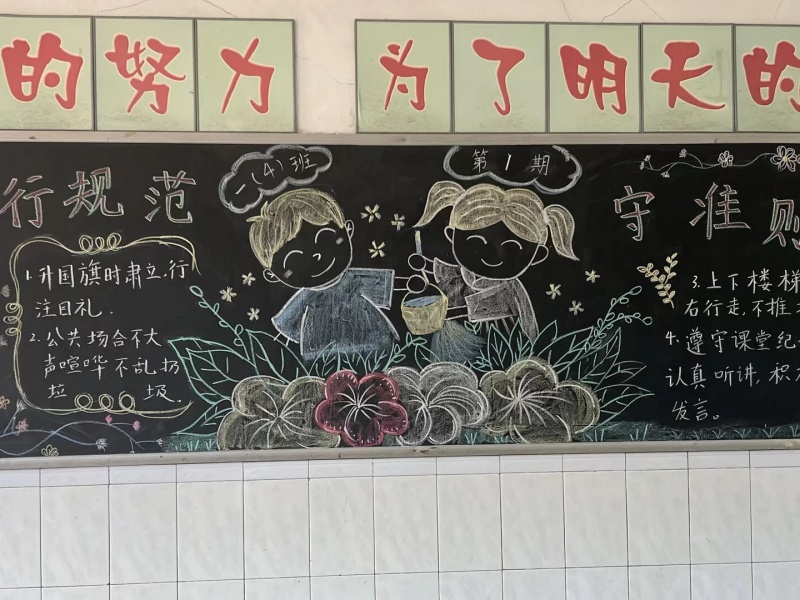 的努力 为了明天的
一(4)班
第1期
行规范
守准则
1.升国旗时肃立,行
注目礼.
2.公共场合不大
声喧哗不乱扔
垃圾.
3.上下楼梯
右行走,不推
4.遵守课堂纪
认真听讲,积
发言。